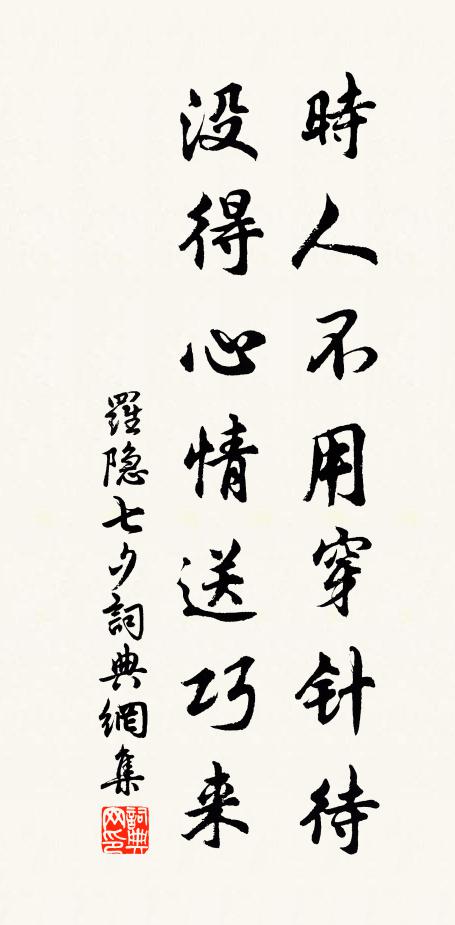 時人不用穿针待
没得心情送巧来
羅隐七夕詞典網集
詞典网印